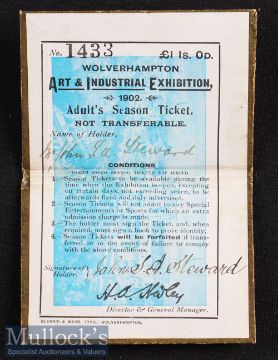 No. 1433 £1 1s. 0d.
WOLVERHAMPTON
ART & INDUSTRIAL EXHIBITION,
1902.
Adult's Season Ticket.
NOT TRANSFERABLE.
Name of Holder,
John S. A. Steward
CONDITIONS
UNDER WHICH SEASON TICKETS ARE ISSUED.
1.—Season Tickets to be available during the
time when the Exhibition is open, excepting
for certain days, not exceeding seven, to be
afterwards fixed and duly advertised.
2.—Season Tickets will not admit to any Special
Entertainments or Sports for which an extra
admission charge is made.
3.—The holder must sign the Ticket, and, when
required, must sign a book to prove identity.
4.—Season Tickets will be forfeited if trans-
ferred or in the event of failure to comply
with the above conditions.
Signature of Holder, John S. A. Steward
H.A.
Director & General Manager.
& WARD, TYPS., WOLVERHAMPTON.
Mullock's
Specialist Auctioneers & Valuers